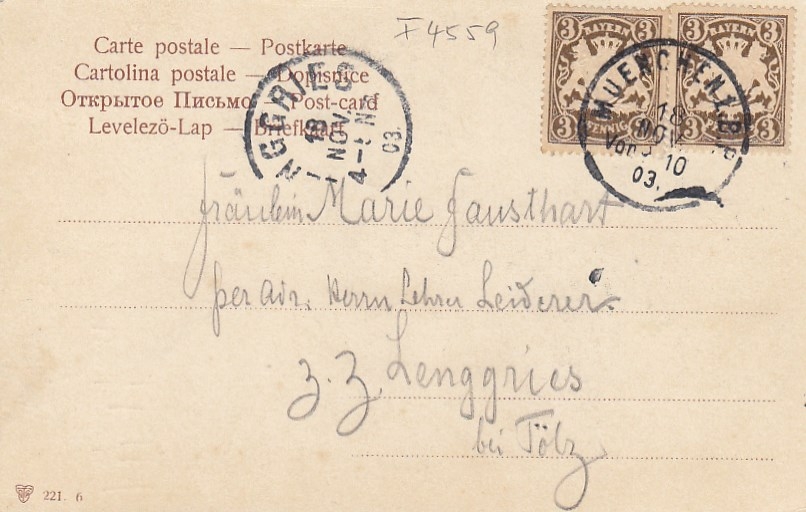 F 4559
Carte postale — Postkarte
Cartolina postale — Dopisnice
Открытое Письмо — Post-card
Levelezö-Lap — Briefkaart
NGGRIES
18
NOV
4-5 N
03.
3 BAYERN 3
3 PFENNIG 3
3 BAYERN 3
3 3
MUENCHEN
18
NOV
Vor. 10
03.
Fräulein Marie Fausthart
per Adr. Herrn Lehrer Leiderer
z. Z. Lenggries
bei Tölz
221. 6